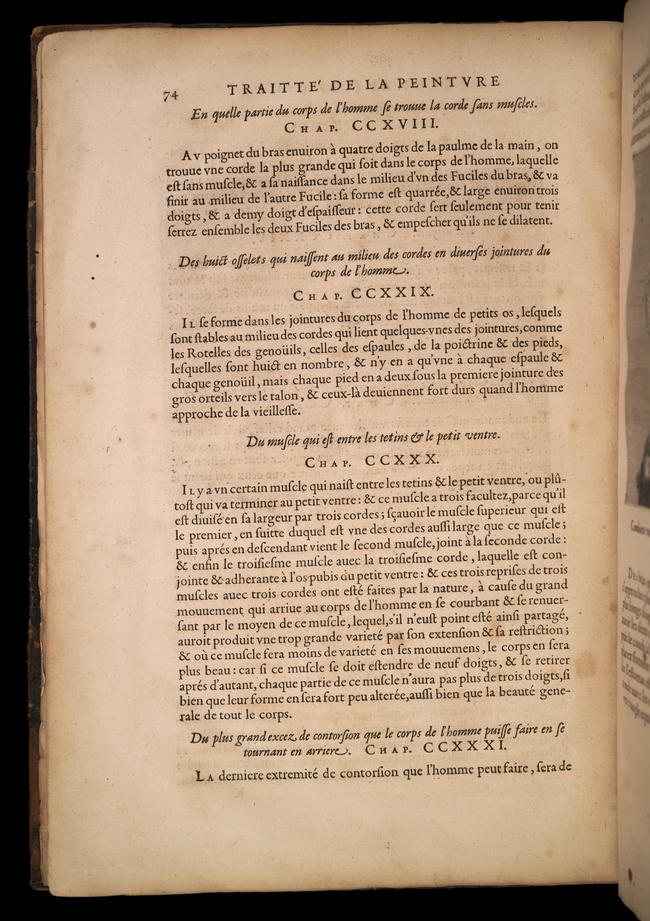 74
TRAITTE' DE LA PEINTVRE
En quelle partie du corps de l'homme ſe trouue la corde ſans muſcles.
CHAP. CCXVIII.
AV poignet du bras enuiron à quatre doigts de la paulme de la main, on
trouue vne corde la plus grande qui ſoit dans le corps de l'homme, laquelle
eſt ſans muſcle, & a ſa naiſſance dans le milieu d'vn des Fuciles du bras, & va
finir au milieu de l'autre Fucile: ſa forme eſt quarrée, & large enuiron trois
doigts, & a demy doigt d'eſpaiſſeur: cette corde ſert ſeulement pour tenir
ſerrez enſemble les deux Fuciles des bras, & empeſcher qu'ils ne ſe dilatent.
Des huict oſſelets qui naiſſent au milieu des cordes en diuerſes jointures du
corps de l'homme.
CHAP. CCXXIX.
IL ſe forme dans les jointures du corps de l'homme de petits os, leſquels
ſont ſtables au milieu des cordes qui lient quelques-vnes des jointures, comme
les Rotelles des genoüils, celles des eſpaules, de la poictrine & des pieds,
leſquelles ſont huict en nombre, & n'y en a qu'vne à chaque eſpaule &
chaque genoüil, mais chaque pied en a deux ſous la premiere jointure des
gros orteils vers le talon, & ceux-là deuiennent fort durs quand l'homme
approche de la vieilleſſe.
Du muſcle qui eſt entre les tetins & le petit ventre.
CHAP. CCXXX.
IL y a vn certain muſcle qui naiſt entre les tetins & le petit ventre, ou plû-
toſt qui va terminer au petit ventre: & ce muſcle a trois facultez, parce qu'il
eſt diuiſé en ſa largeur par trois cordes; ſçauoir le muſcle ſuperieur qui eſt
le premier, en ſuitte duquel eſt vne des cordes auſſi large que ce muſcle;
puis aprés en deſcendant vient le ſecond muſcle, joint à la ſeconde corde:
& enfin le troiſieſme muſcle auec la troiſieſme corde, laquelle eſt con-
jointe & adherante à l'os pubis du petit ventre: & ces trois repriſes de trois
muſcles auec trois cordes ont eſté faites par la nature, à cauſe du grand
mouuement qui arriue au corps de l'homme en ſe courbant & ſe renuer-
ſant par le moyen de ce muſcle, lequel, s'il n'euſt point eſté ainſi partagé,
auroit produit vne trop grande varieté par ſon extenſion & ſa reſtriction;
& où ce muſcle fera moins de varieté en ſes mouuemens, le corps en ſera
plus beau: car ſi ce muſcle ſe doit eſtendre de neuf doigts, & ſe retirer
aprés d'autant, chaque partie de ce muſcle n'aura pas plus de trois doigts, ſi
bien que leur forme en ſera fort peu alterée, auſſi bien que la beauté gene-
rale de tout le corps.
Du plus grand excez de contorſion que le corps de l'homme puiſſe faire en ſe
tournant en arriere. CHAP. CCXXXI.
LA derniere extremité de contorſion que l'homme peut faire, ſera de